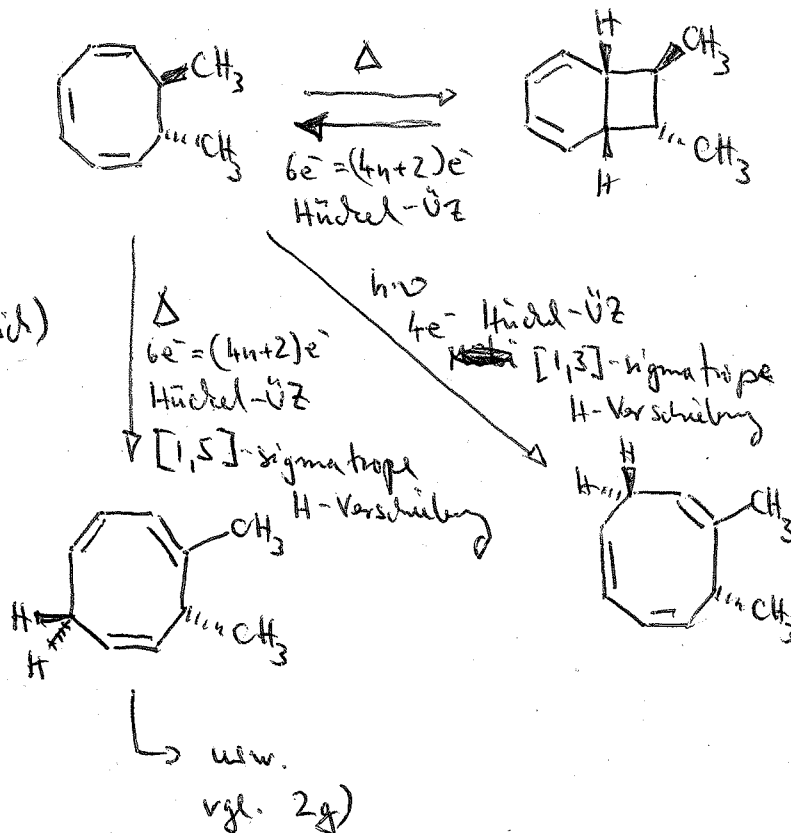 CH3
CH3
Δ
6e⁻=(4n+2)e⁻
Hückel-ÜZ
H
H
CH3
CH3
ich)
Δ
6e⁻=(4n+2)e⁻
Hückel-ÜZ
[1,5]-sigmatrope
H-Verschiebung
h·ν
4e⁻ Hückel-ÜZ
[1,3]-sigmatrope
H-Verschiebung
CH3
CH3
H
H
H
H
CH3
CH3
usw.
vgl. 2g)